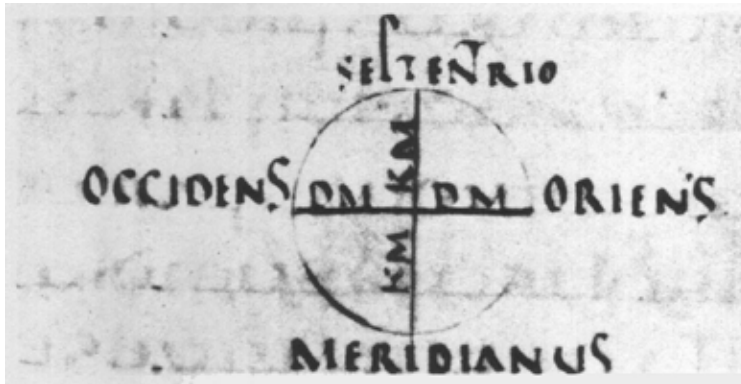 SEPTENTRIO
KM
OCCIDENS DM DM ORIENS
KM
MERIDIANUS